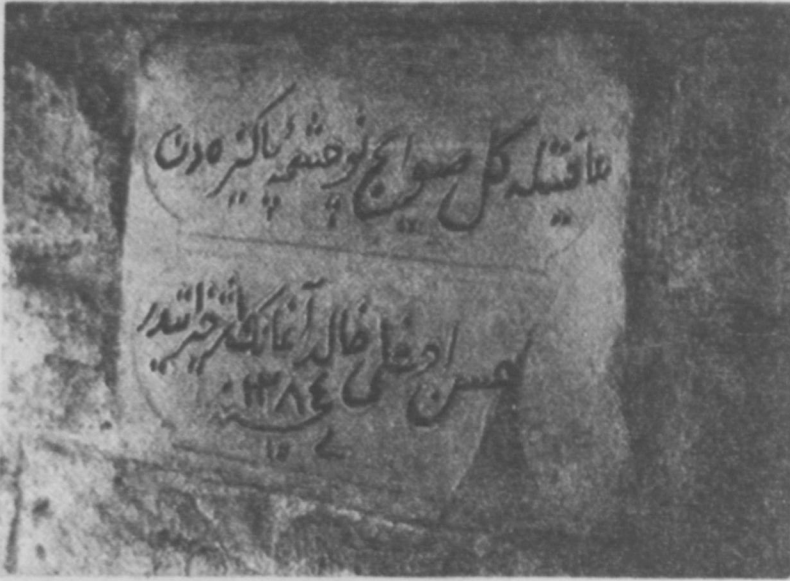 عافيتله كل صو ايچ بو چشمهٔ پاكيزه دن
حسن اوغلى خالد آغانك اثر خيراتيدر
سنه ١٣٨٤